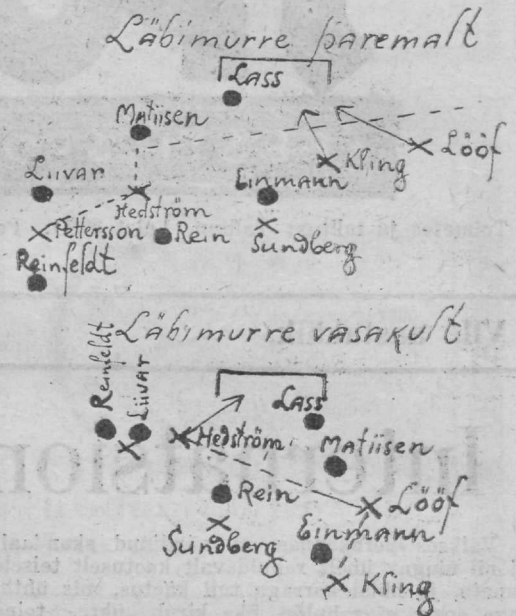 Läbimurre paremalt
Lass
Matiisen
Lööf
Kling
Liivar
Einmann
Hedström
Pettersson
Rein
Sundberg
Reinfeldt
Läbimurre vasakult
Reinfeldt
Liivar
Lass
Hedström
Matiisen
Rein
Lööf
Einmann
Sundberg
Kling